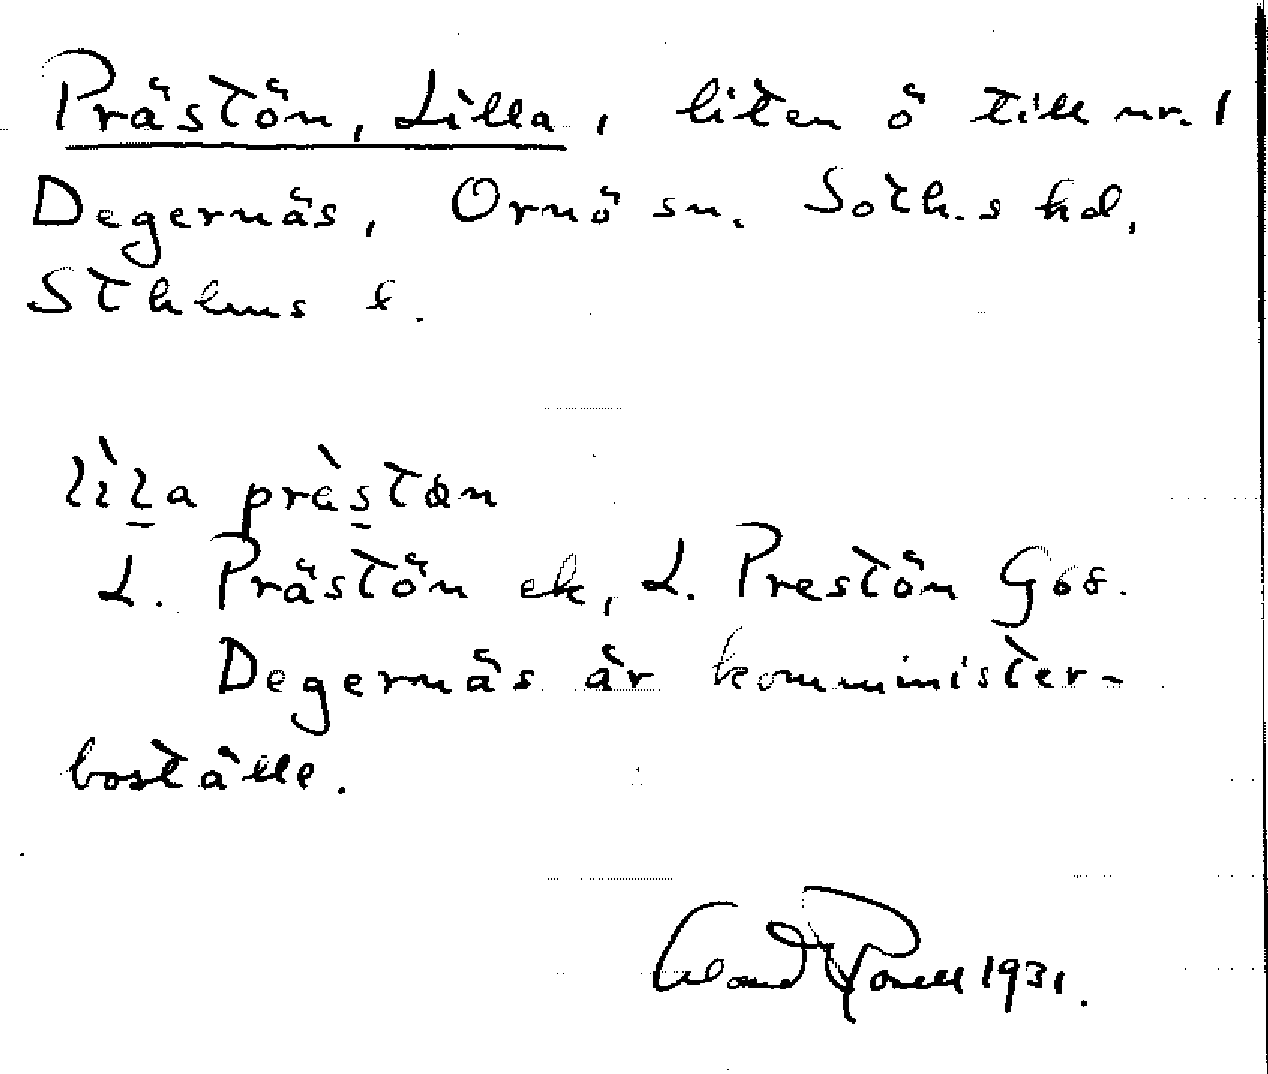 Prästön, Lilla, liten ö till nr. 1
Degernäs, Ornö sn. Soth.s hd,
Sthlms l.
lìla prὰstөn
L. Prästön ek, L. Prestön G68.
Degernäs är komminister-
boställe.
1931.